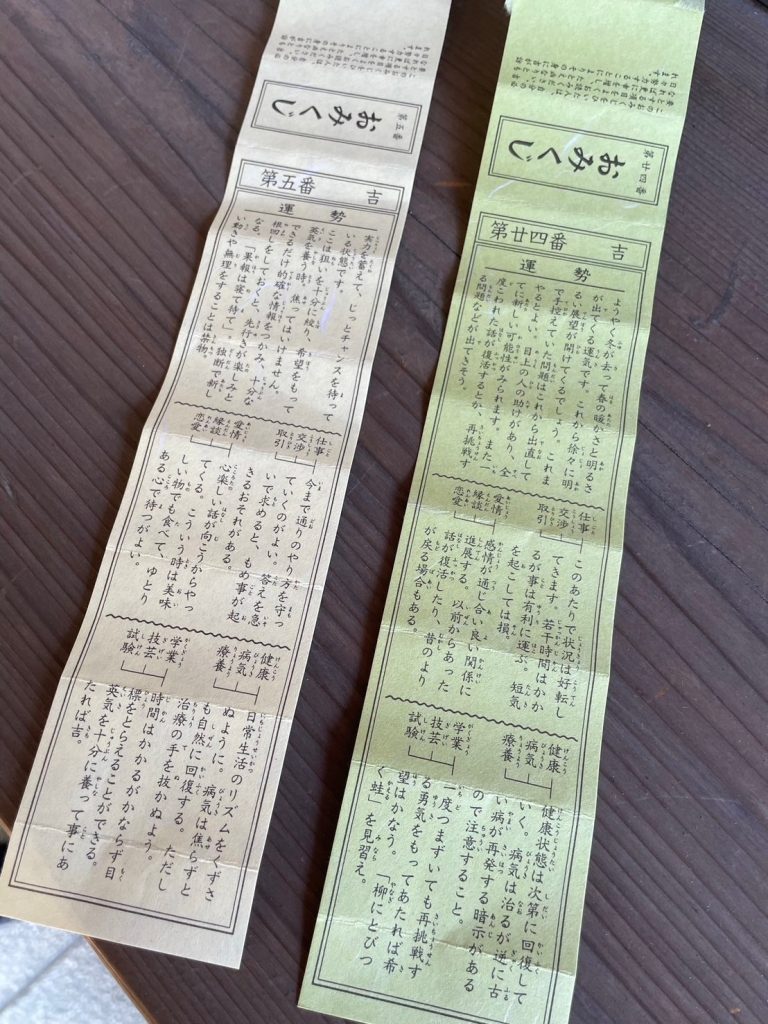 おみくじ
第五番
第五番 吉
運勢
実力を蓄えて、じっとチャンスを待って
いる状態です。
ここは狙いを十分に絞り、希望をもって
英気を養う時。焦ってはいけません。
できるだけ的確な情報をつかみ、十分な
根回しをしておくと、先行きが楽しみと
なる。「果報は寝て待て」。独断で新し
い動きや無理をすることは禁物。
仕事
交渉
取引
今まで通りのやり方を守っ
ていくのがよい。答えを急
いで求めると、もめ事が起
きるおそれがある。
愛情
縁談
恋愛
心楽しい話が向こうからやっ
てくる。こういう時は美味
しい物でも食べて、ゆとり
ある心で待つがよい。
健康
病気
療養
日常生活のリズムをくずさ
ぬように。病気は焦らずと
も自然に回復する。ただし
治療の手を抜かぬよう。
学業
技芸
試験
時間はかかるがかならず目
標をとらえることができる。
英気を十分に養って事にあ
たれば吉。
おみくじ
第廿四番
第廿四番 吉
運勢
ようやく冬が去って春の暖かさと明るさ
が出てくる運気です。これから徐々に明
るい展望が開けてくるでしょう。これま
で手控えていた問題はこれから出直して
やるとよい。目上の人の助けがあり、全
てに新しい可能性がみられます。また一
度こわれた話が復活するとか、再挑戦す
る問題などが出てきそう。
仕事
交渉
取引
このあたりで状況は好転し
てきます。若干時間はかか
るが事は有利に運ぶ。短気
を起こしては損。
愛情
縁談
恋愛
感情が通じ合い良い関係に
進展する。以前からあった
話が復活したり、昔のより
が戻る場合もある。
健康
病気
療養
健康状態は次第に回復して
いく。病気は治るが逆に古
い病が再発する暗示がある
ので注意すること。
学業
技芸
試験
一度つまずいても再挑戦す
る勇気をもってあたれば希
望はかなう。「柳にとびつ
く蛙」を見習え。